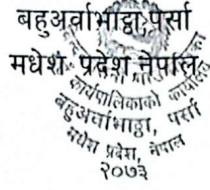 बहुअर्वाभाठ्ठा,पर्सा
मधेश प्रदेश नेपाल
कार्यपालिकाको कार्यालय
बहुअर्वाभाठ्ठा, पर्सा
मधेश प्रदेश, नेपाल
२०७३